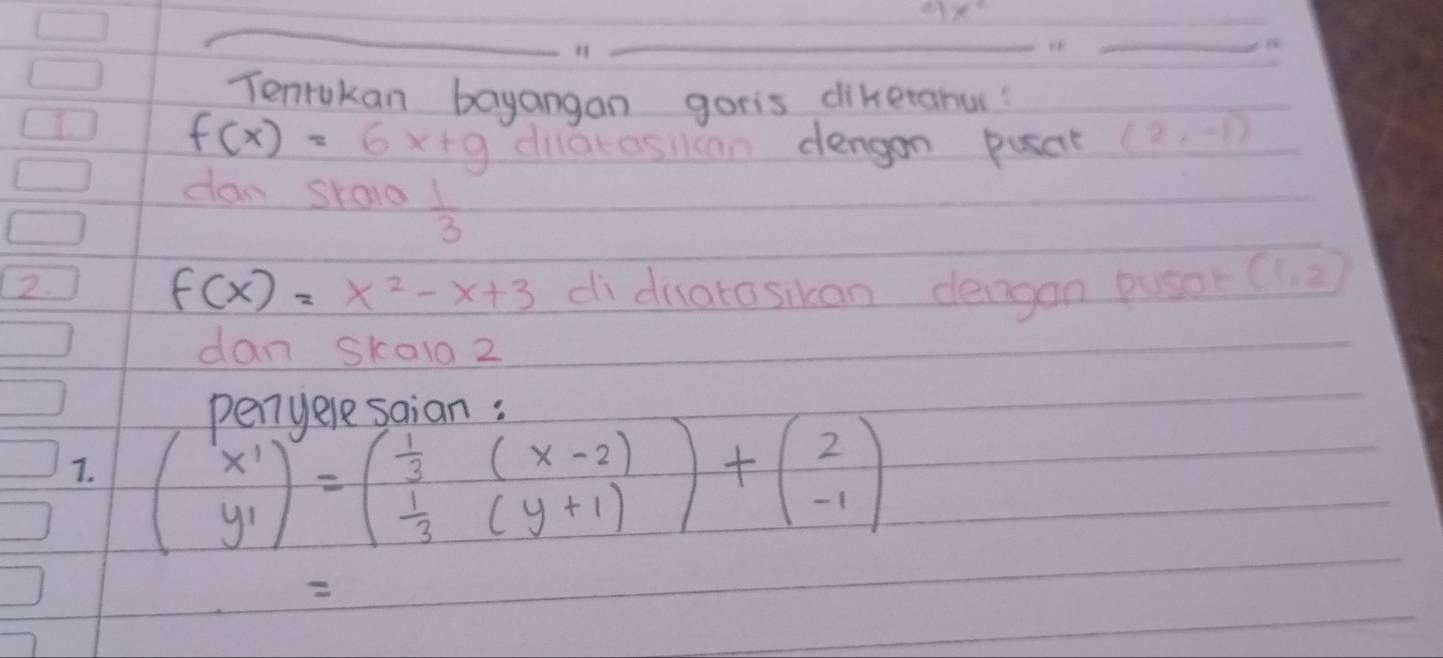 Tentukan bayangan garis diketahui:
1. f(x) = 6x+9 dilatasikan dengan pusat (2,-1)
dan skala 1/3
2. f(x) = x² - x + 3 di dilatasikan dengan pusat (1,2)
dan skala 2
penyelesaian :
1. (x' y') = (1/3 (x-2) 1/3 (y+1)) + (2 -1)
=